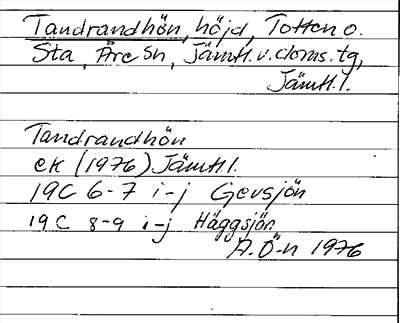 Tandrandhön, höjd, Totten o.
Sta, Åre sn, Jämtl. v. doms. tg,
Jämtl. l.
Tandrandhön
ek (1976) Jämtl. l.
19C 6-7 i-j Gevsjön
19C 8-9 i-j Häggsjön
A. Ö-n 1976